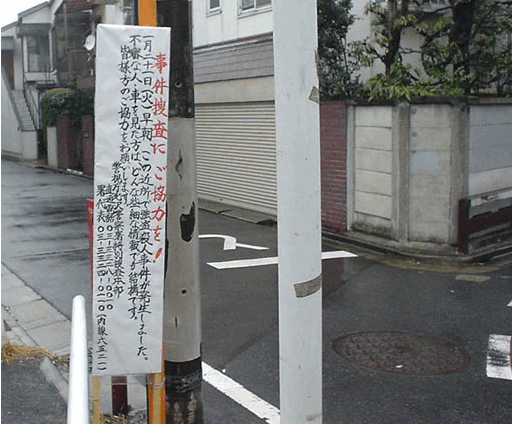 事件捜査にご協力を!
一月二十一日(火)早朝、この近所で強盗殺人事件が発生しました。
不審な人・車を見た方は、どんな些細な情報でも結構です。
皆様方のご協力をお願いします。
警察署特別捜査本部
署代表 〇三-三三二四-〇一一〇